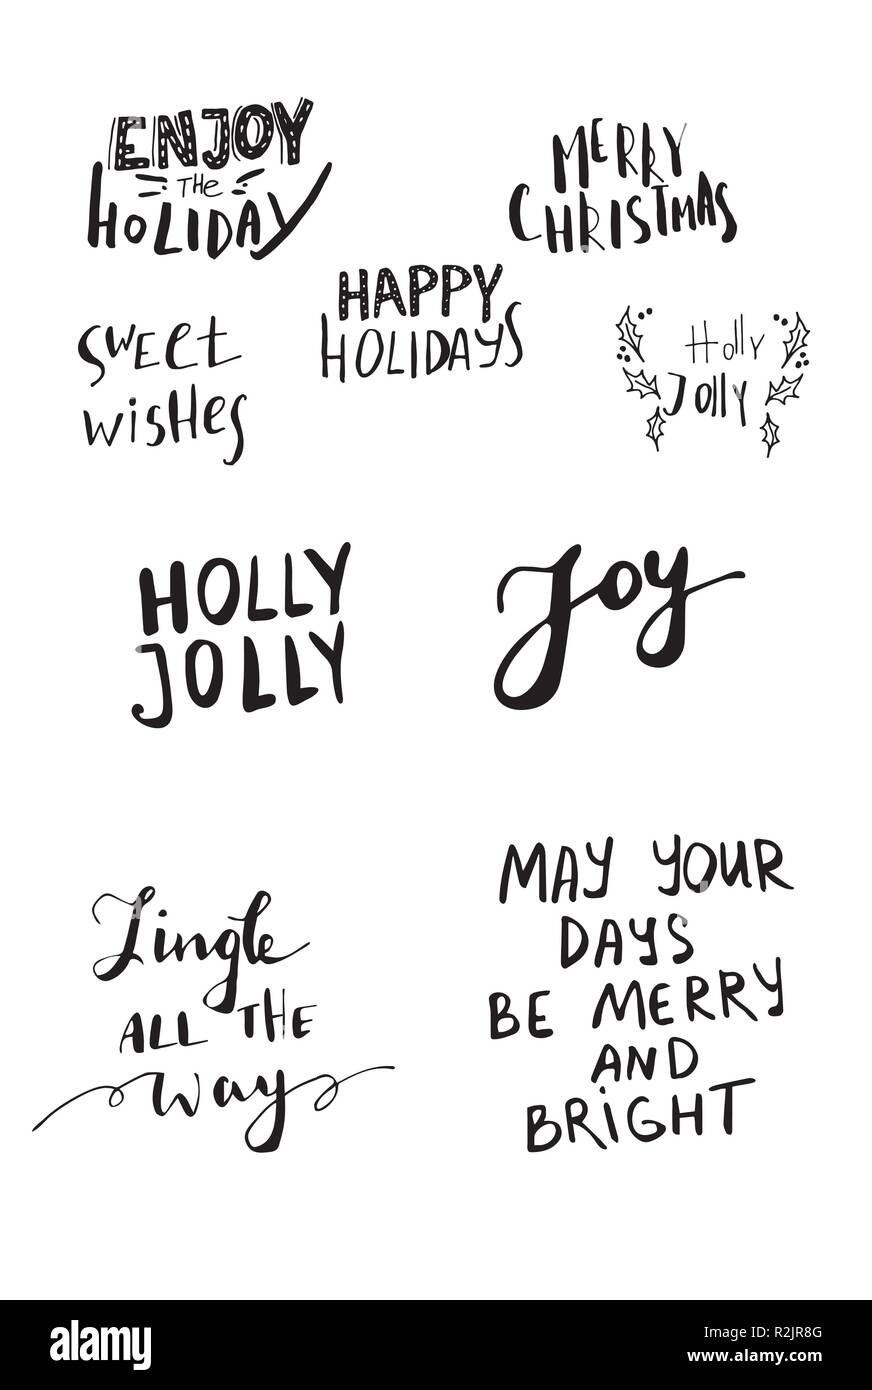 ENJOY
THE
HOLIDAY
MERRY
CHRISTMAS
HAPPY
HOLIDAYS
SWEEt
WiSHES
Holly
Jolly
HOLLY
JOLLY
Joy
Jingle
ALL THE
way
MAY YOUR
DAYS
BE MERRY
AND
BRiGHT
alamy
Image ID: R2JR8G
www.alamy.com